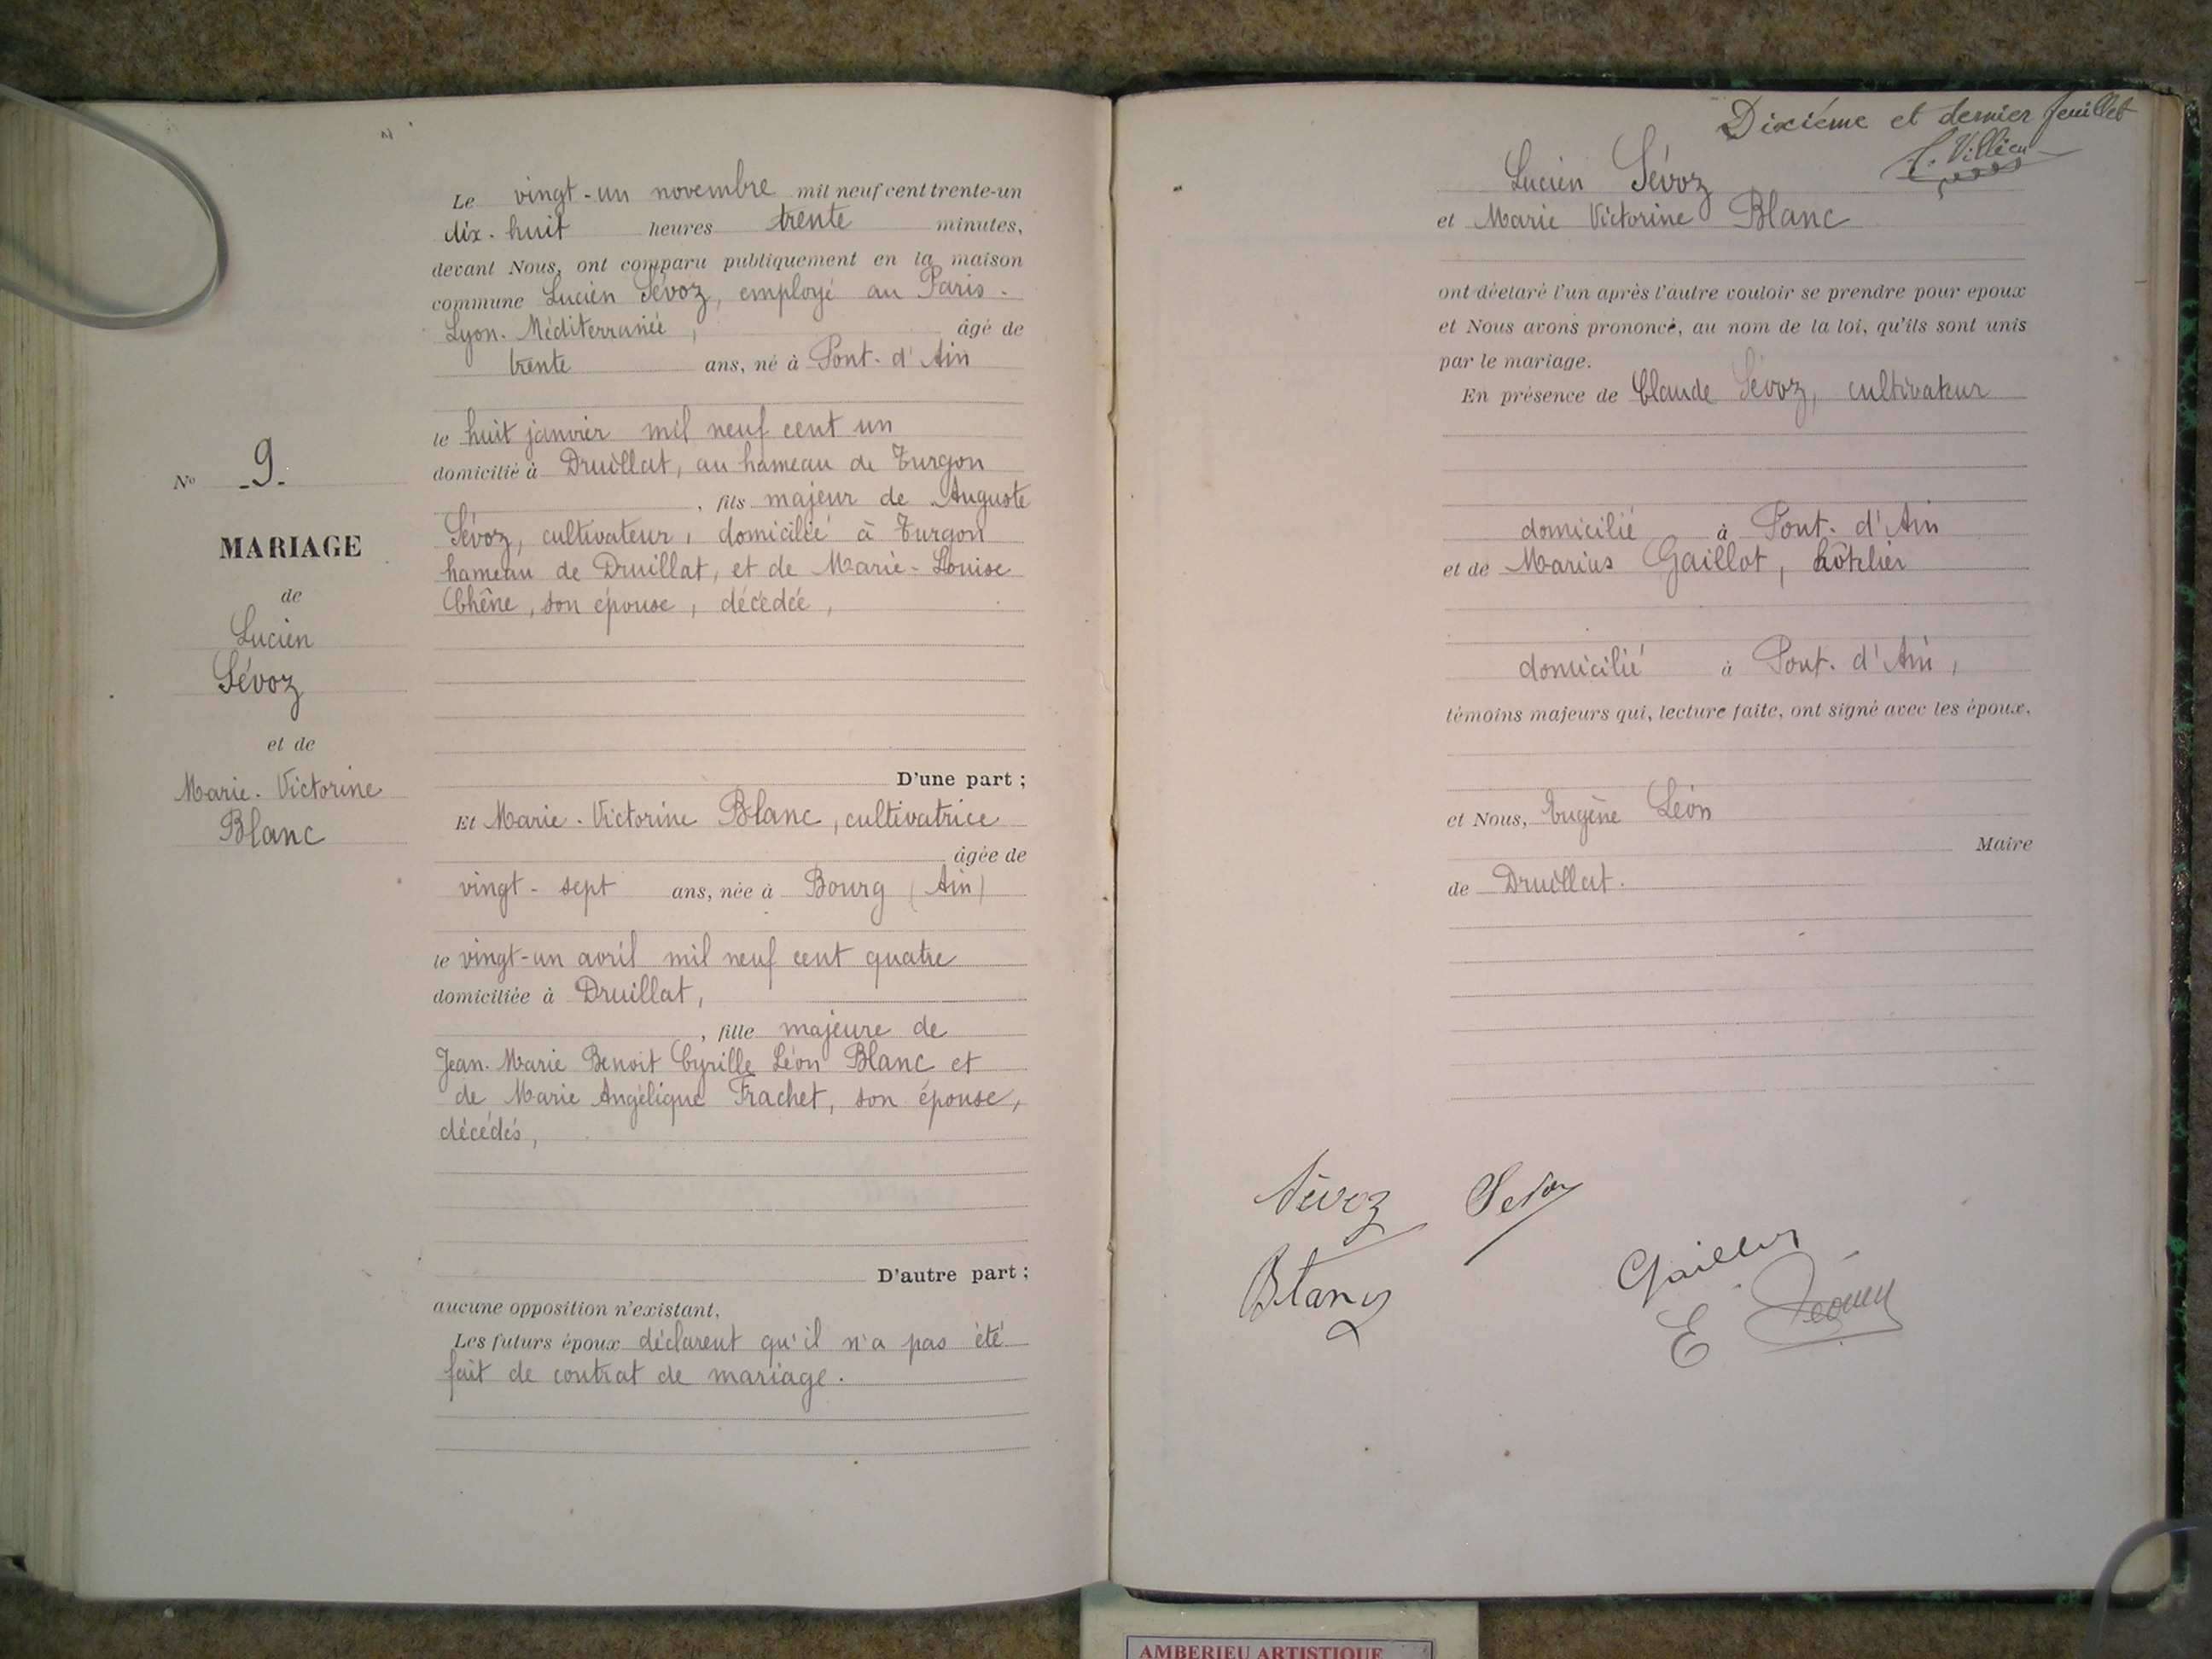 Nº -9-
MARIAGE
de
Lucien
Sévoz
et de
Marie-Victorine
Blanc
Le vingt-un novembre mil neuf cent trente-un
dix-huit heures trente minutes,
devant Nous, ont comparu publiquement en la maison
commune Lucien Sévoz, employé au Paris-
Lyon-Méditerranée, âgé de
trente ans, né à Pont-d'Ain
le huit janvier mil neuf cent un
domicilié à Druillat, au hameau de Turgon
, fils majeur de Auguste
Sévoz, cultivateur, domicilié à Turgon
hameau de Druillat, et de Marie-Louise
Chêne, son épouse, décédée,
D'une part;
Et Marie-Victorine Blanc, cultivatrice
âgée de
vingt-sept ans, née à Bourg (Ain)
le vingt-un avril mil neuf cent quatre
domiciliée à Druillat,
, fille majeure de
Jean-Marie Benoit Cyrille Léon Blanc et
de Marie Angélique Frachet, son épouse,
décédés,
D'autre part;
aucune opposition n'existant,
Les futurs époux déclarent qu'il n'a pas été
fait de contrat de mariage.
Dixiéme et dernier feuillet
Lucien Sévoz
et Marie Victorine Blanc
ont déclaré l'un après l'autre vouloir se prendre pour epoux
et Nous avons prononcé, au nom de la loi, qu'ils sont unis
par le mariage.
En présence de Claude Sévoz, cultivateur
domicilié à Pont-d'Ain
et de Marius Gaillot, hôtelier
domicilié à Pont-d'Ain,
témoins majeurs qui, lecture faite, ont signé avec les époux,
et Nous, Eugène Léon
Maire
de Druillat.
Sévoz
Blanc
E Léon
AMBERIEU ARTISTIQUE